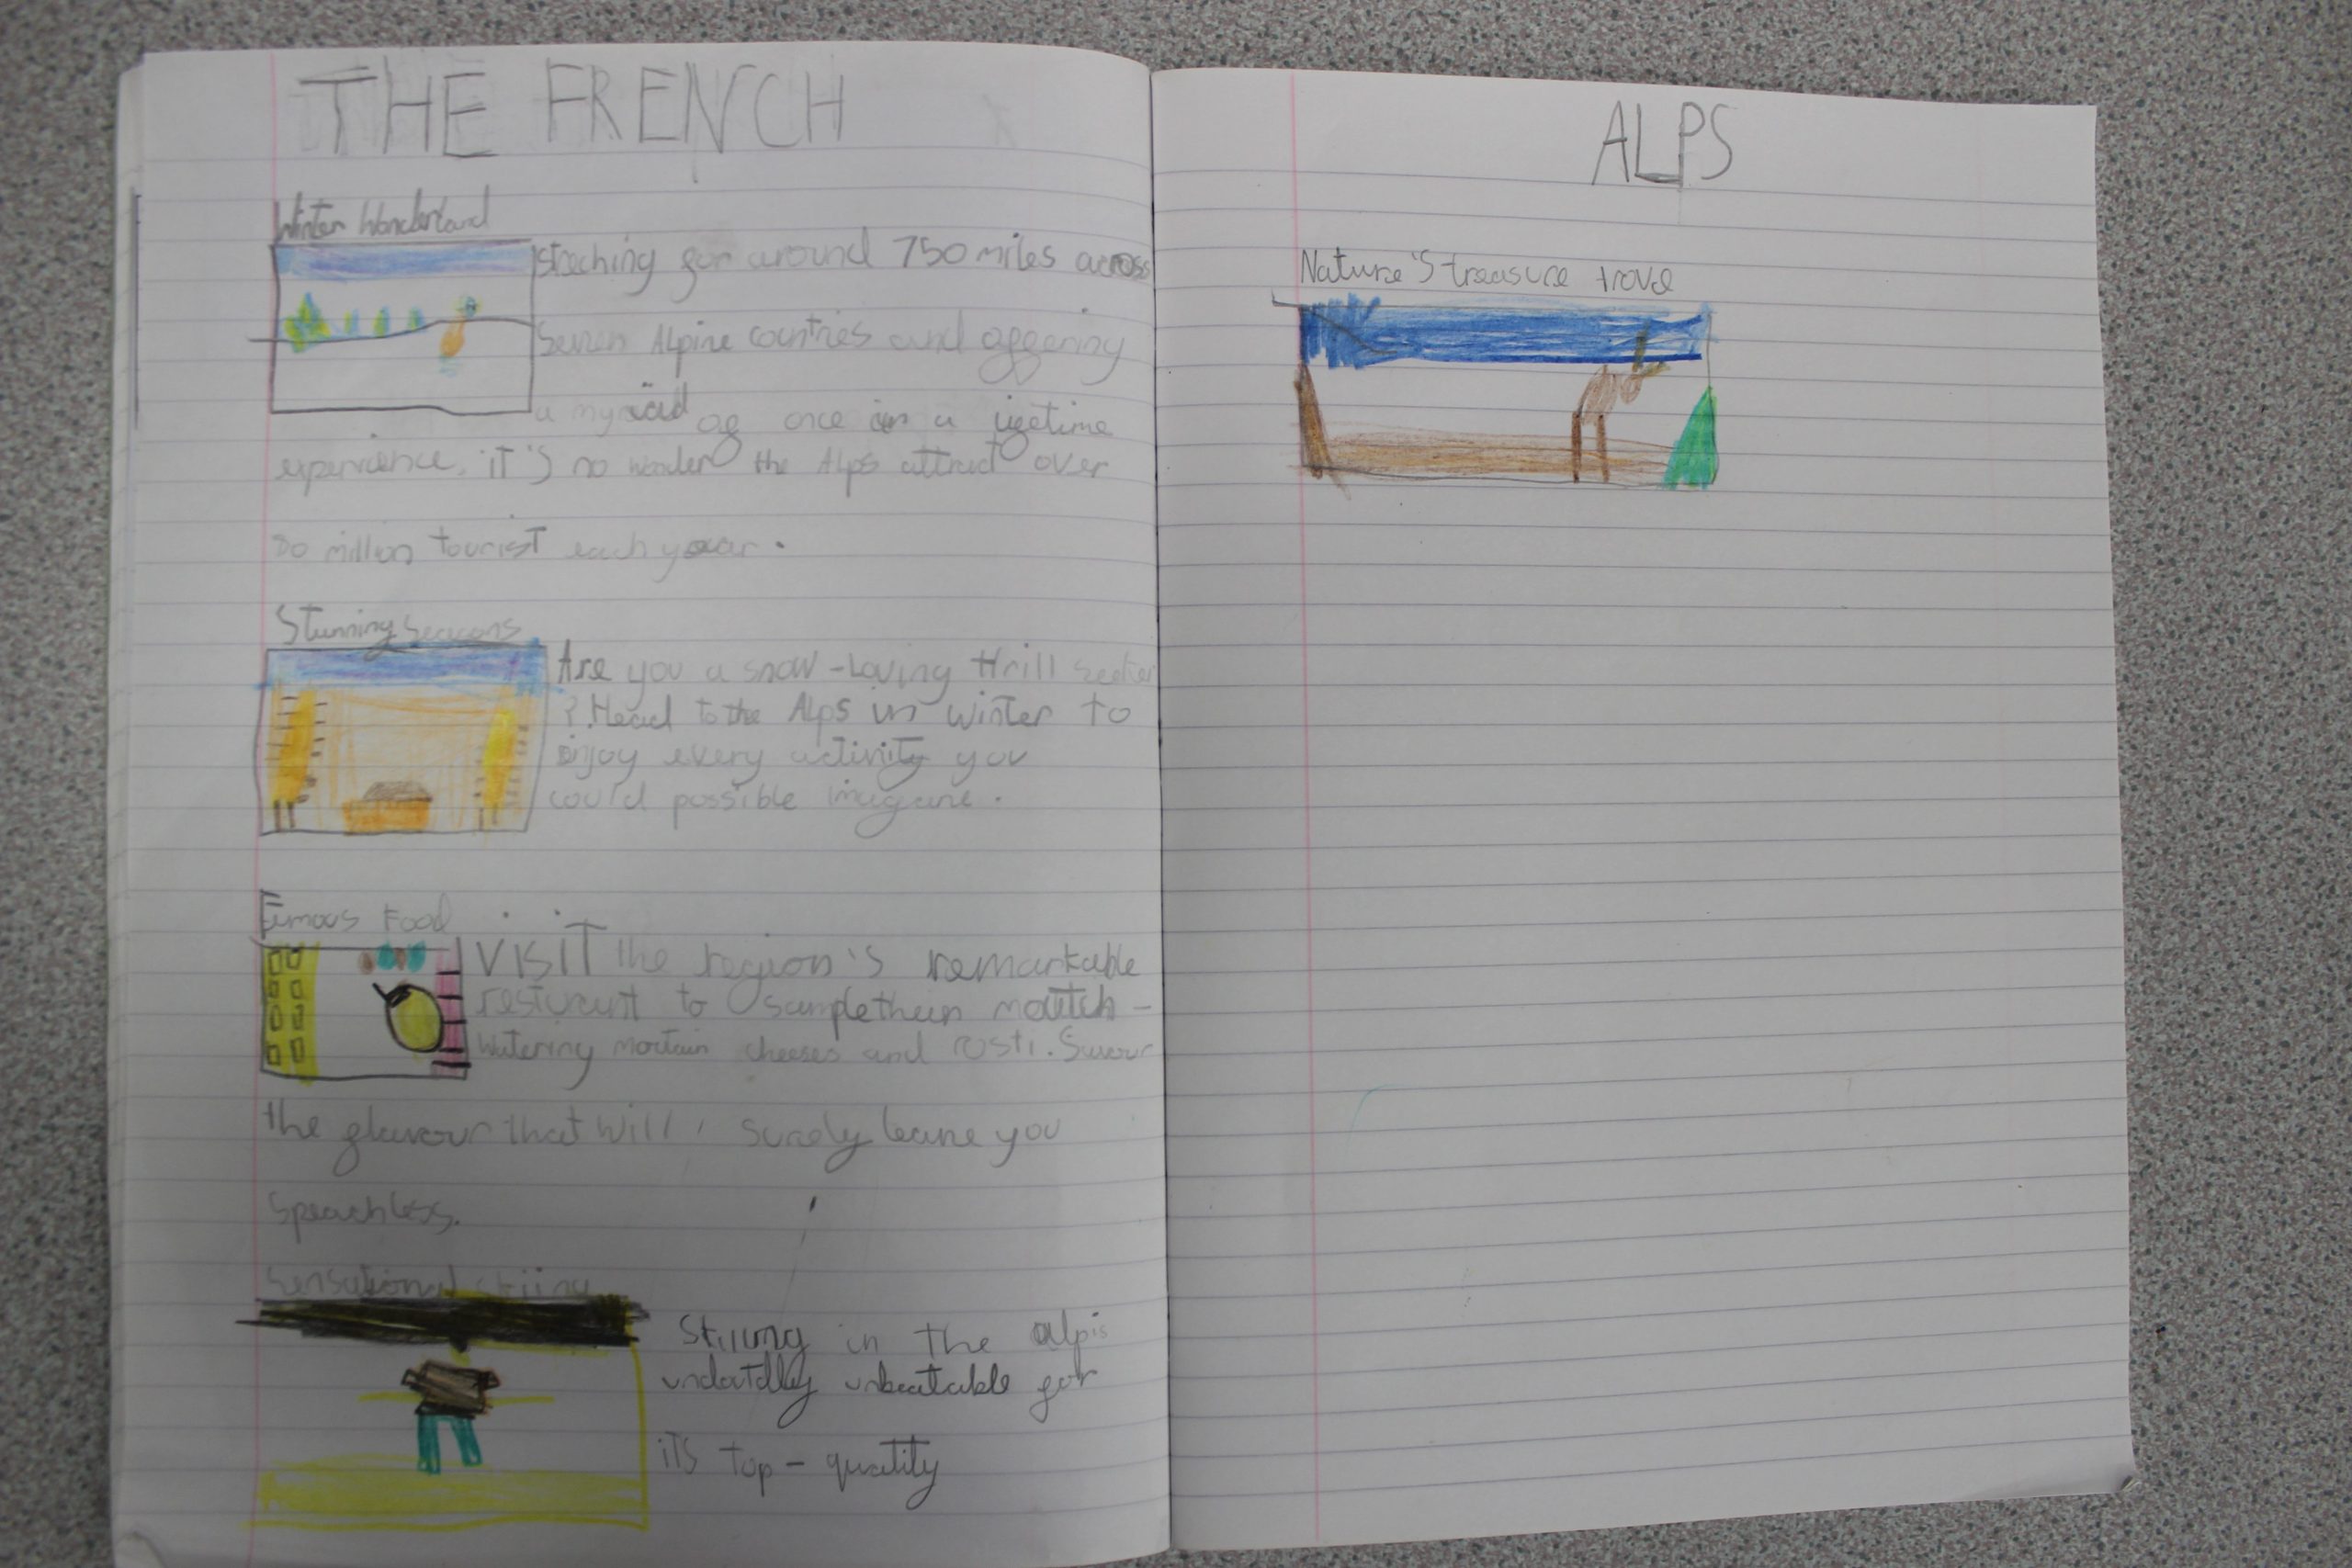 THE FRENCH
Winter Wonderland
streching for around 750 miles across
seven Alpine countries and offering
a myriad of once in a lifetime
experience, it's no wonder the Alps attract over
80 million tourist each year.
Stunning seasons
Are you a snow-Loving thrill seeker
?. Head to the Alps in winter to
enjoy every activity you
could possible imagine.
Famous Food
VISIT the region's remarkable
resturant to sample their moutch-
watering moutain cheeses and rosti. Savour
the flavour that will surely leave you
Speachless.
Sensational skiing
Skiing in the alpis
undoutdly unbeatable for
its top-quality
ALPS
Nature's treasure trove